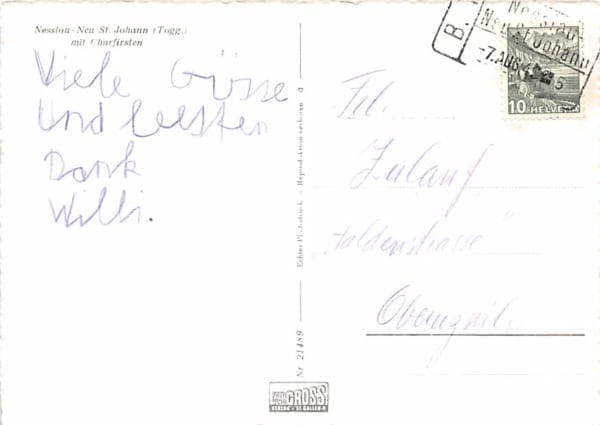 Nesslau - Neu St. Johann (Togg.)
mit Churfirsten
Viele Grüsse
Und besten
Dank
Willi.
Echter Photodruck — Reproduktion verboten
Nr. 21489
GROSS
VERLAG ST. GALLEN
B.
Nesslau-
Neu St Johann
-7.AUG.
10 HELVETIA
Frl.
Zulauf
"Haldenstrasse"
Oberuzwil